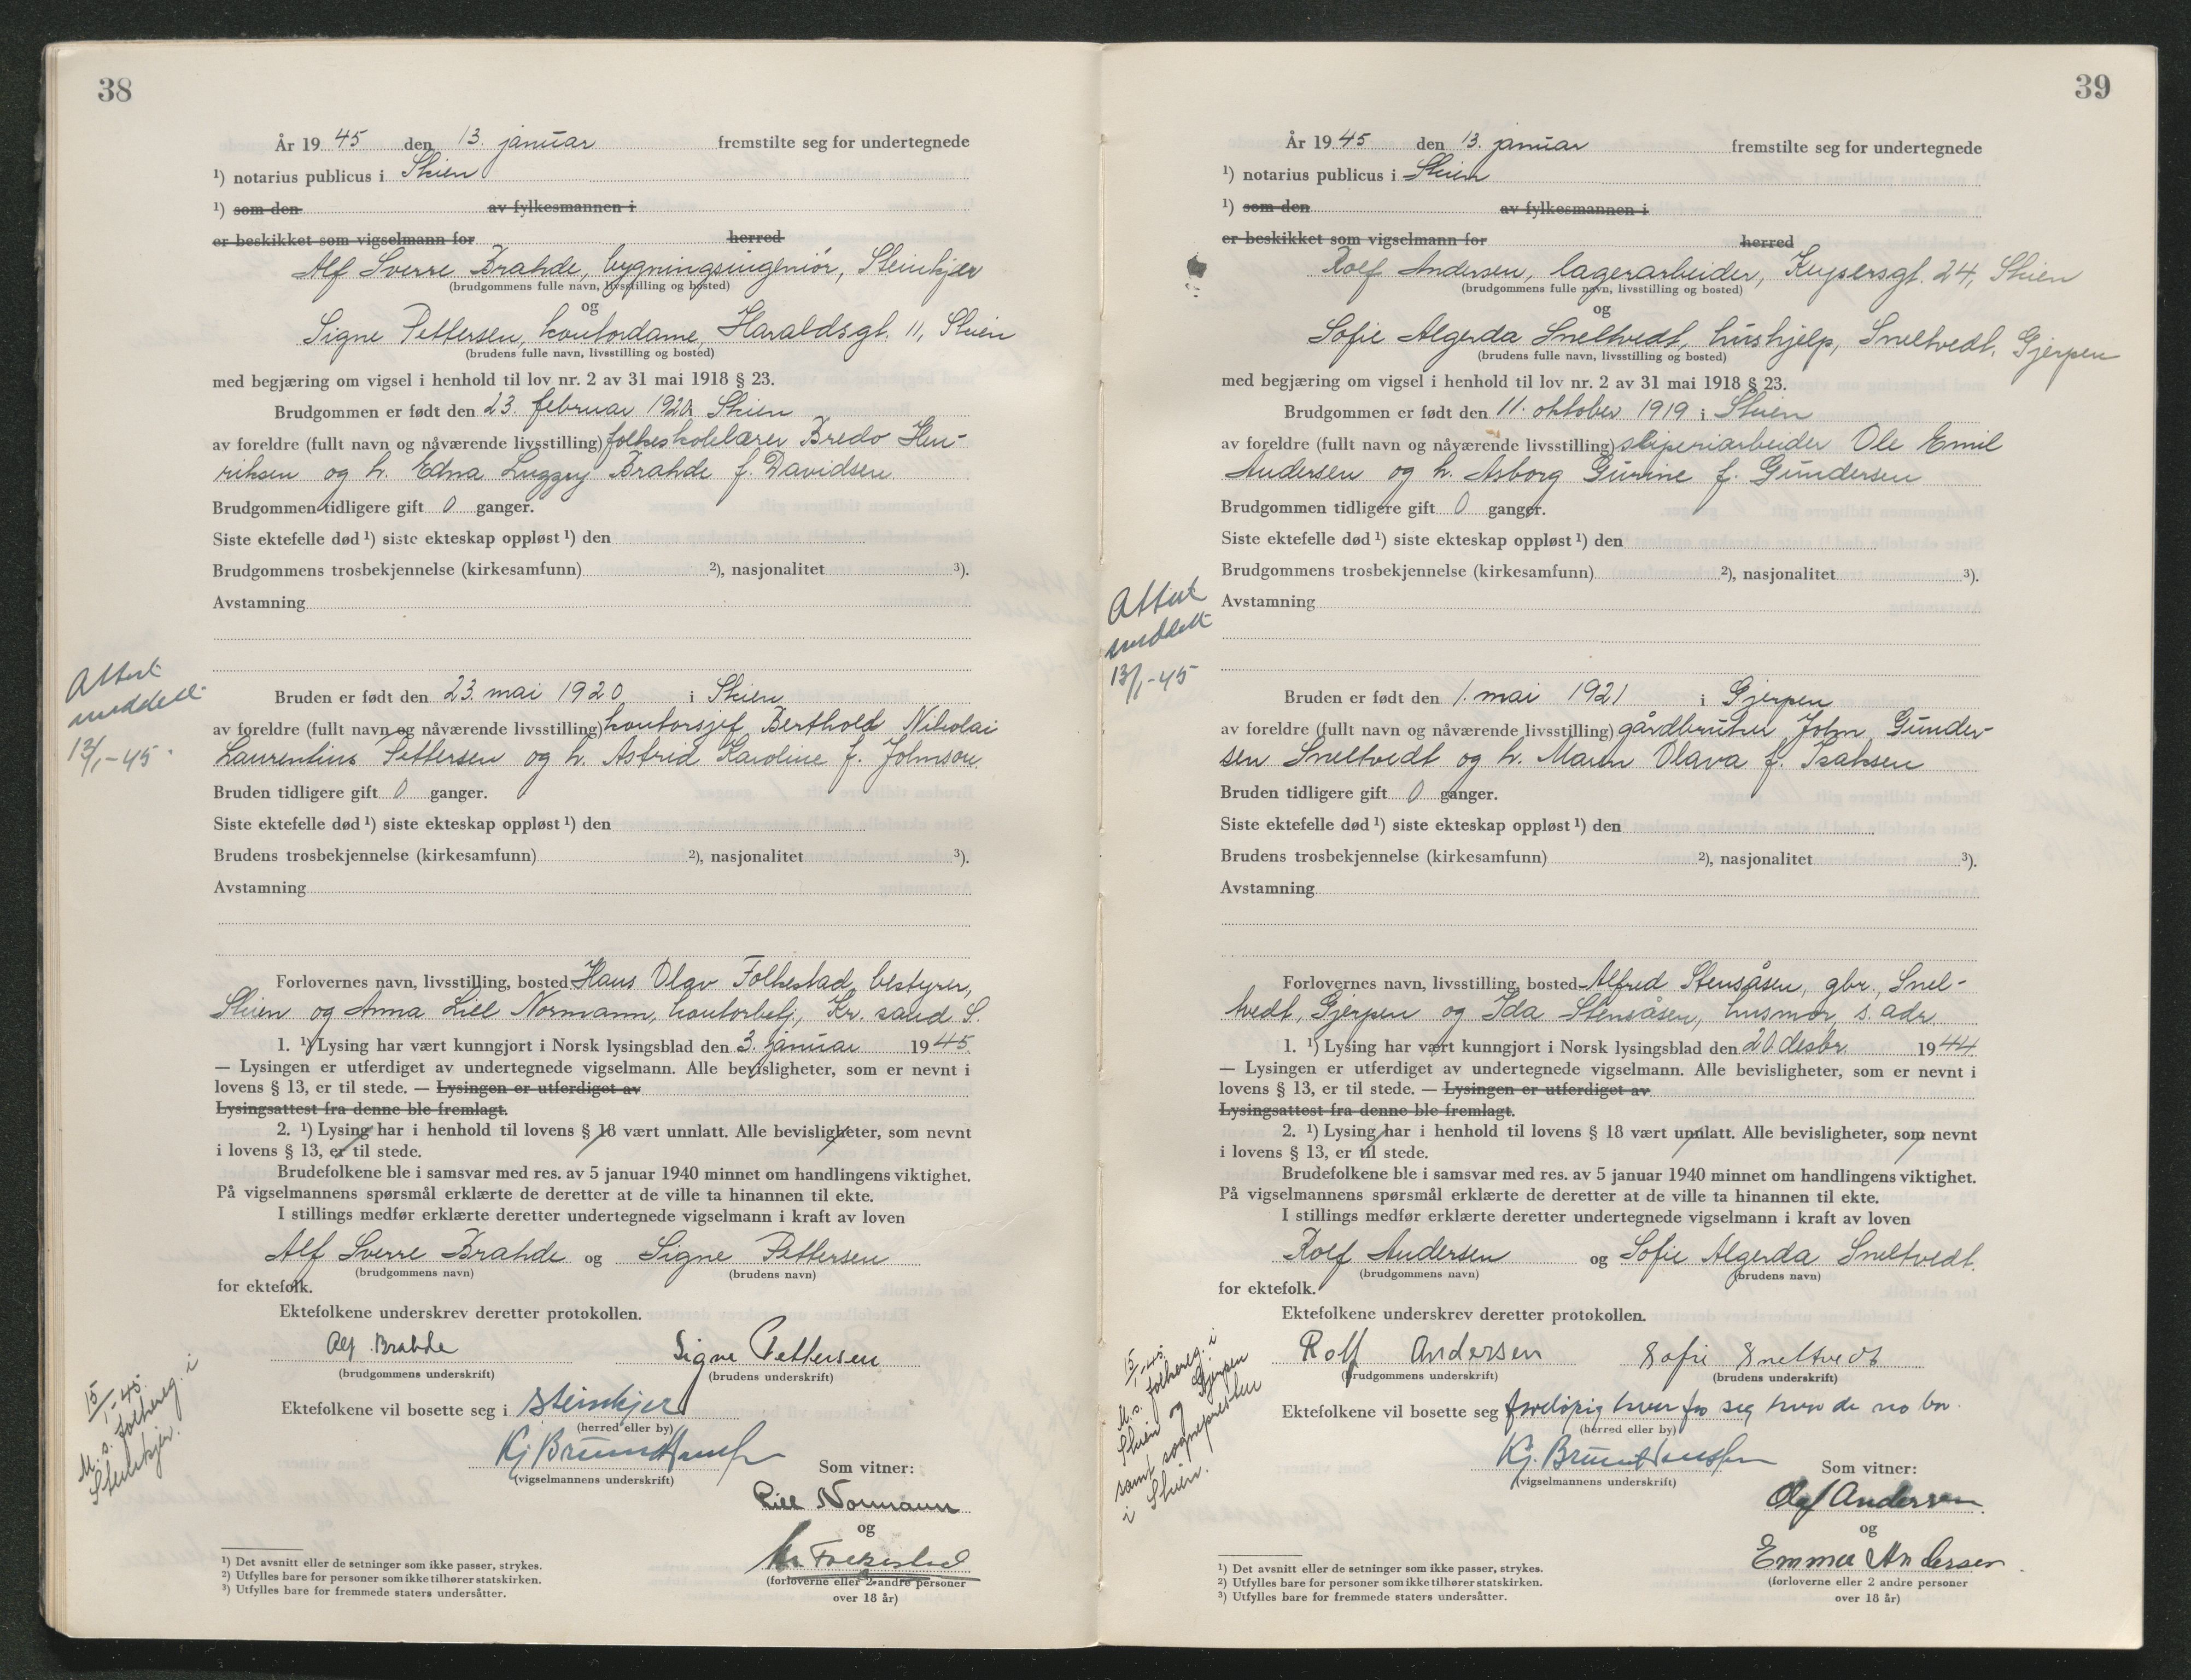 38
År 19 45 den 13. januar fremstilte seg for undertegnede
¹) notarius publicus i Skien
¹) som den av fylkesmannen i
er beskikket som vigselmann for herred
Alf Sverre Brahde, bygningsingeniør, Steinkjer
(brudgommens fulle navn, livsstilling og bosted)
og
Signe Pettersen, kontordame, Haraldsgt. 11, Skien
(brudens fulle navn, livsstilling og bosted)
med begjæring om vigsel i henhold til lov nr. 2 av 31 mai 1918 § 23.
Brudgommen er født den 23. februar 1920 i Skien
av foreldre (fullt navn og nåværende livsstilling) folkeskolelærer Bredo Hen-
riksen og h. Edna Brahde f. Davidsen
Brudgommen tidligere gift 0 ganger.
Siste ektefelle død ¹) siste ekteskap oppløst ¹) den
Brudgommens trosbekjennelse (kirkesamfunn) ²), nasjonalitet ³).
Avstamning
Attest
meddelt
13/1-45.
Bruden er født den 23. mai 1920 i Skien
av foreldre (fullt navn og nåværende livsstilling) kontorsjef Berthold Nikolai
Laurentius Pettersen og h. Astrid Karoline f. Johnson.
Bruden tidligere gift 0 ganger.
Siste ektefelle død ¹) siste ekteskap oppløst ¹) den
Brudens trosbekjennelse (kirkesamfunn) ²), nasjonalitet ³).
Avstamning
Forlovernes navn, livsstilling, bosted Hans Olav Folkestad, bestyrer,
Skien og Anna Lill Normann, kontorbetj., Kr. sand S.
1. ¹) Lysing har vært kunngjort i Norsk lysingsblad den 3. januar 1945
— Lysingen er utferdiget av undertegnede vigselmann. Alle bevisligheter, som er nevnt i
lovens § 13, er til stede. — Lysingen er utferdiget av
Lysingsattest fra denne ble fremlagt.
2. ¹) Lysing har i henhold til lovens § 18 vært unnlatt. Alle bevisligheter, som nevnt
i lovens § 13, er til stede.
Brudefolkene ble i samsvar med res. av 5 januar 1940 minnet om handlingens viktighet.
På vigselmannens spørsmål erklærte de deretter at de ville ta hinannen til ekte.
I stillings medfør erklærte deretter undertegnede vigselmann i kraft av loven
Alf Sverre Brahde og Signe Pettersen
(brudgommens navn) (brudens navn)
for ektefolk.
Ektefolkene underskrev deretter protokollen.
Alf Brahde Signe Pettersen
(brudgommens underskrift) (brudens underskrift)
15/1-45.
M. s. folkereg. i
Steinkjer.
Ektefolkene vil bosette seg i Steinkjer
(herred eller by)
(vigselmannens underskrift)
Som vitner:
Lill Normann
og
Folkestad
(forloverne eller 2 andre personer
over 18 år)
¹) Det avsnitt eller de setninger som ikke passer, strykes.
²) Utfylles bare for personer som ikke tilhører statskirken.
³) Utfylles bare for fremmede staters undersåtter.
39
År 19 45 den 13. januar fremstilte seg for undertegnede
¹) notarius publicus i Skien
¹) som den av fylkesmannen i
er beskikket som vigselmann for herred
Rolf Andersen, lagerarbeider, Kuysersgt. 24, Skien
(brudgommens fulle navn, livsstilling og bosted)
og
Sofie Algerda Sneltvedt, hushjelp, Sneltvedt, Gjerpen
(brudens fulle navn, livsstilling og bosted)
med begjæring om vigsel i henhold til lov nr. 2 av 31 mai 1918 § 23.
Brudgommen er født den 11. oktober 1919 i Skien
av foreldre (fullt navn og nåværende livsstilling) sliperiarbeider Ole Emil
Andersen og h. Asborg Gurine f. Gundersen
Brudgommen tidligere gift 0 ganger.
Siste ektefelle død ¹) siste ekteskap oppløst ¹) den
Brudgommens trosbekjennelse (kirkesamfunn) ²), nasjonalitet ³).
Avstamning
Attest
meddelt
13/1-45
Bruden er født den 1. mai 1921 i Gjerpen
av foreldre (fullt navn og nåværende livsstilling) gårdbruker John Gunder-
sen Sneltvedt og h. Maren Olava f. Isaksen
Bruden tidligere gift 0 ganger.
Siste ektefelle død ¹) siste ekteskap oppløst ¹) den
Brudens trosbekjennelse (kirkesamfunn) ²), nasjonalitet ³).
Avstamning
Forlovernes navn, livsstilling, bosted Alfred Stensåsen, gbr., Snel-
tvedt, Gjerpen og Ida Stensåsen, husmor, s. adr.
1. ¹) Lysing har vært kunngjort i Norsk lysingsblad den 20. desbr. 1944
— Lysingen er utferdiget av undertegnede vigselmann. Alle bevisligheter, som er nevnt i
lovens § 13, er til stede. — Lysingen er utferdiget av
Lysingsattest fra denne ble fremlagt.
2. ¹) Lysing har i henhold til lovens § 18 vært unnlatt. Alle bevisligheter, som nevnt
i lovens § 13, er til stede.
Brudefolkene ble i samsvar med res. av 5 januar 1940 minnet om handlingens viktighet.
På vigselmannens spørsmål erklærte de deretter at de ville ta hinannen til ekte.
I stillings medfør erklærte deretter undertegnede vigselmann i kraft av loven
Rolf Andersen og Sofie Algerda Sneltvedt.
(brudgommens navn) (brudens navn)
for ektefolk.
Ektefolkene underskrev deretter protokollen.
Rolf Andersen Sofie Sneltvedt
(brudgommens underskrift) (brudens underskrift)
15/1-45.
M. s. folkereg. i
Skien og Gjerpen
samt sognepresten
i Skien.
Ektefolkene vil bosette seg foreløpig hver for seg hvor de no bor.
(herred eller by)
(vigselmannens underskrift)
Som vitner:
Olaf Andersen
og
Emma Andersen
(forloverne eller 2 andre personer
over 18 år)
¹) Det avsnitt eller de setninger som ikke passer, strykes.
²) Utfylles bare for personer som ikke tilhører statskirken.
³) Utfylles bare for fremmede staters undersåtter.